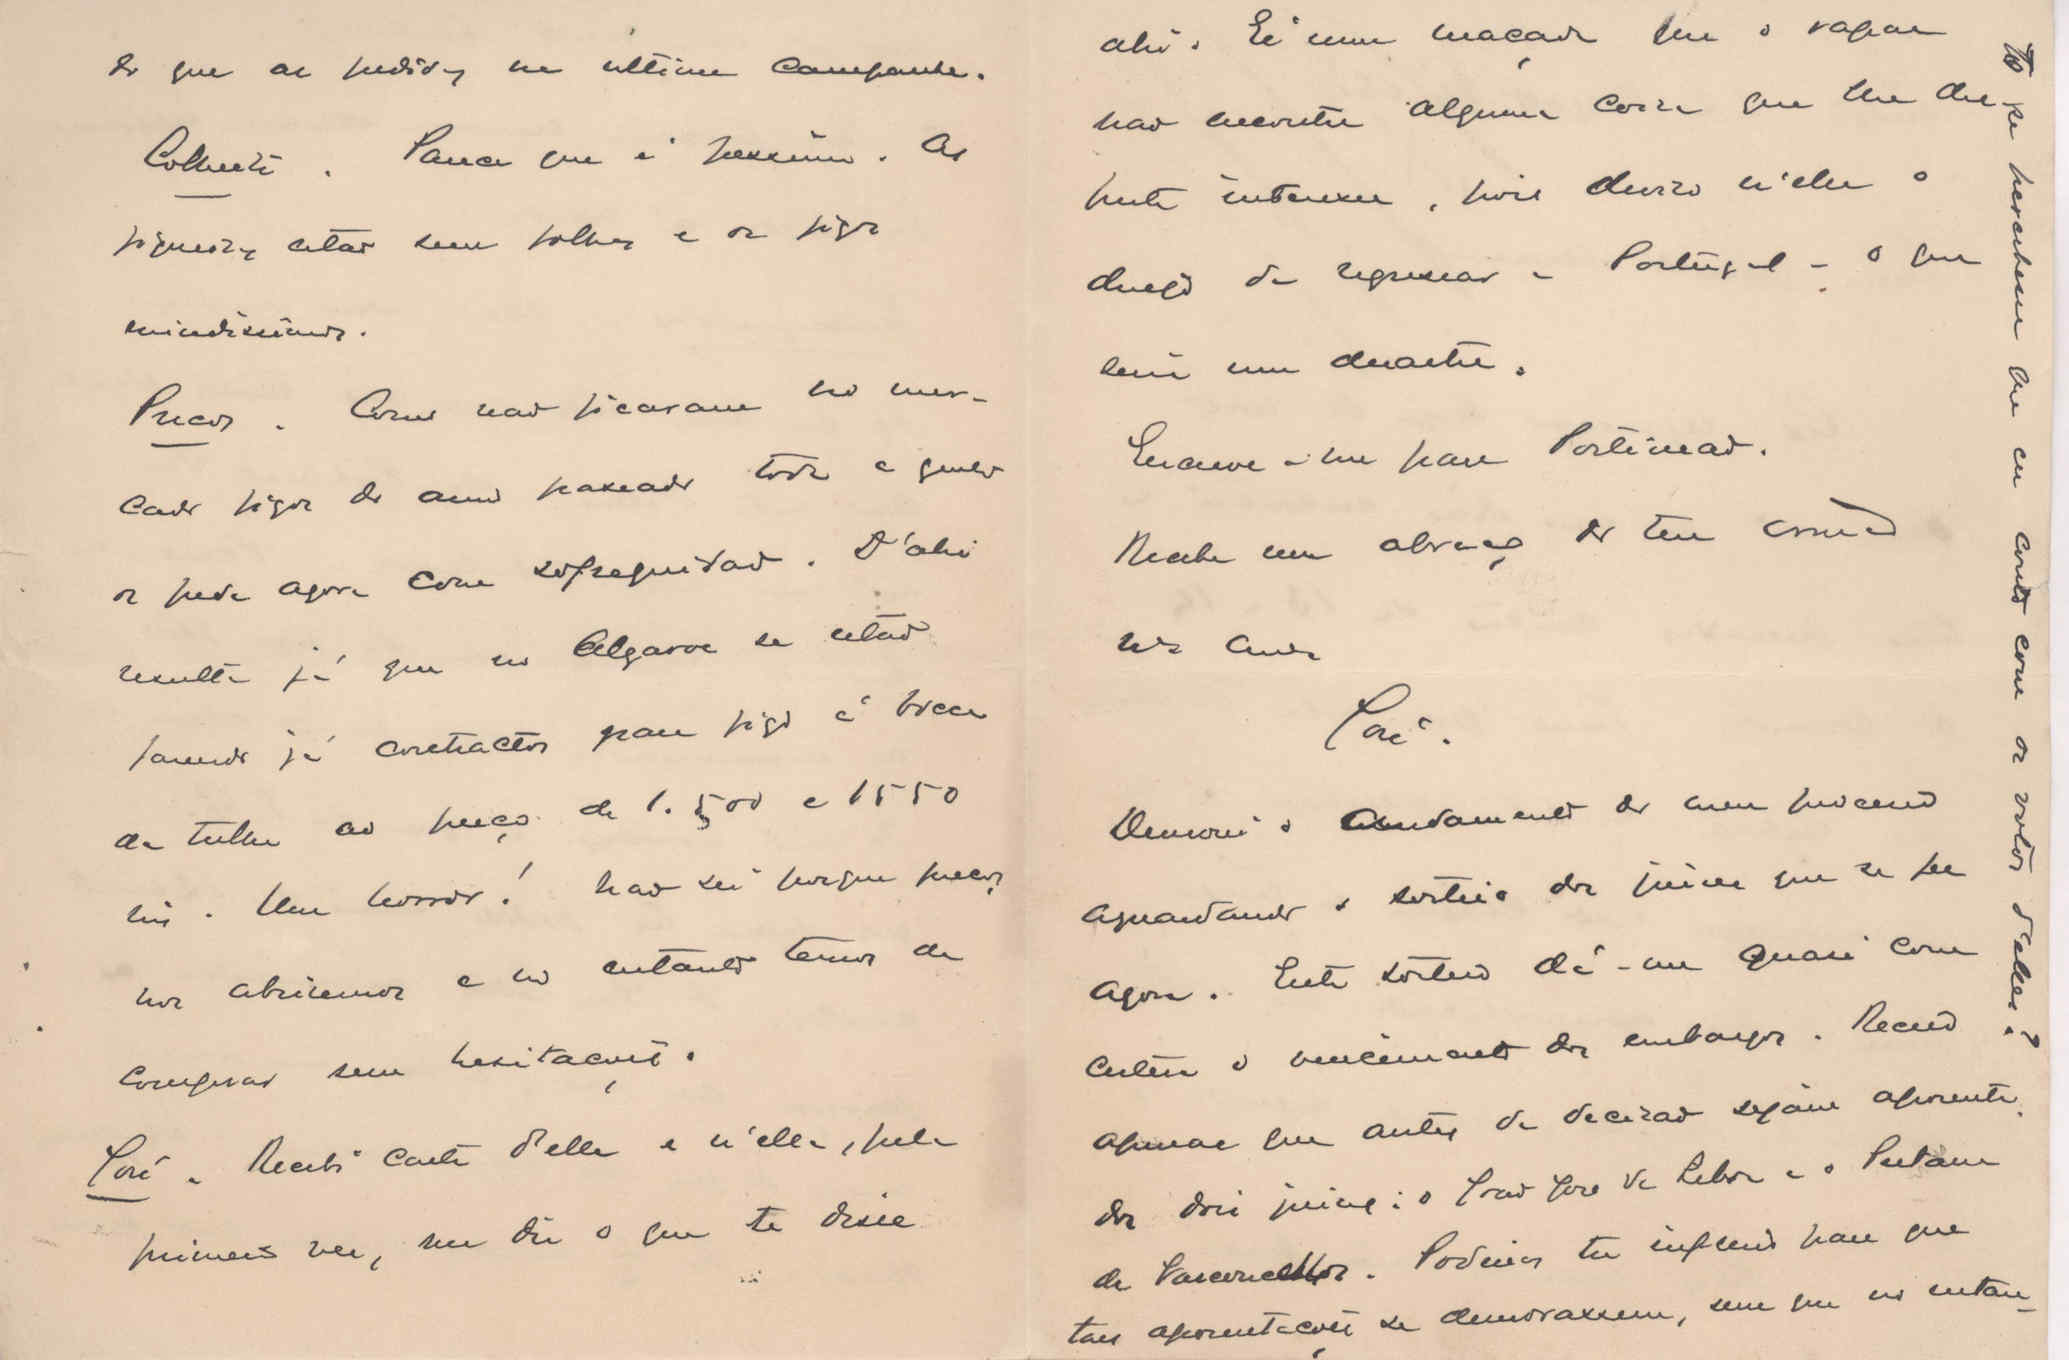 do que as pedidas na ultima campanha.
Colheita. Parece que é pessima. As
figueiras estão sem folhas e os figos
miudissimos.
Preços. Como não ficaram no mer-
cado figos do anno passado toda a gente
os pede agora com sofreguidão. D'ahi
resulta já que no Algarve se estão
fazendo já contractos para figo á bocca
da tulha ao preço de 1.500 e 1550
reis. Um horror! Não sei porque preços
nos abriremos e no entanto temos de
comprar sem hesitações.
José. Recebi carta d'elle e n'ella, pela
primeira vez, me diz o que te disse
ahi. É uma maçada que o rapaz
não encontre alguma coisa que lhe des-
perte interesse, pois diviso n'elle o
desejo de regressar a Portugal - o que
seria um desastre.
Escreve-me para Portimão.
Recebe um abraço do teu irmão
mto amo
José.
Demora o andamento do meu processo
aguardando o sorteio dos juizes que se fez
agora. Este sorteio dá-me quasi com
certeza o vencimento dos embargos. Receio
apenas que antes da decisão sejam aposenta-
dos dois juizes: o João José da Silva e o Pestana
de Vasconcellos. Poderias tu influir para que
taes aposentações se demorassem, sem que no entan-
to se percebesse que eu conto com os votos d'elles?